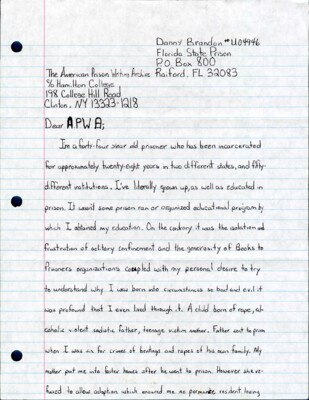 Danny Brandon #U04446
Florida State Prison
P.O. Box 800
Raiford, FL 32083
The American Prison Writing Archive
℅ Hamilton College
198 College Hill Road
Clinton, NY 13323-1218
Dear APWA;
Im a forty-four year old prisoner who has been incarcerated
for approximately twenty-eight years in two different states, and fifty
different institutions. I've literally grown up, as well as educated in
prison. It wasnt some prison ran or organized educational program by
which I obtained my education. On the contrary, it was the isolation and
frustration of solitary confinement and the generosity of Books to
Prisoners organizations coupled with my personal desire to try
to understand why I was born into circumstances so bad and evil it
was profound that I even lived through it. A child born of rape, al-
coholic violent sadistic father, teenage victim mother. Father sent to prison
when I was six for crimes of beatings and rapes of his own family. My
mother put me into foster homes after he went to prison. However she re-
fused to allow adoption which ensured me no permanent resident living